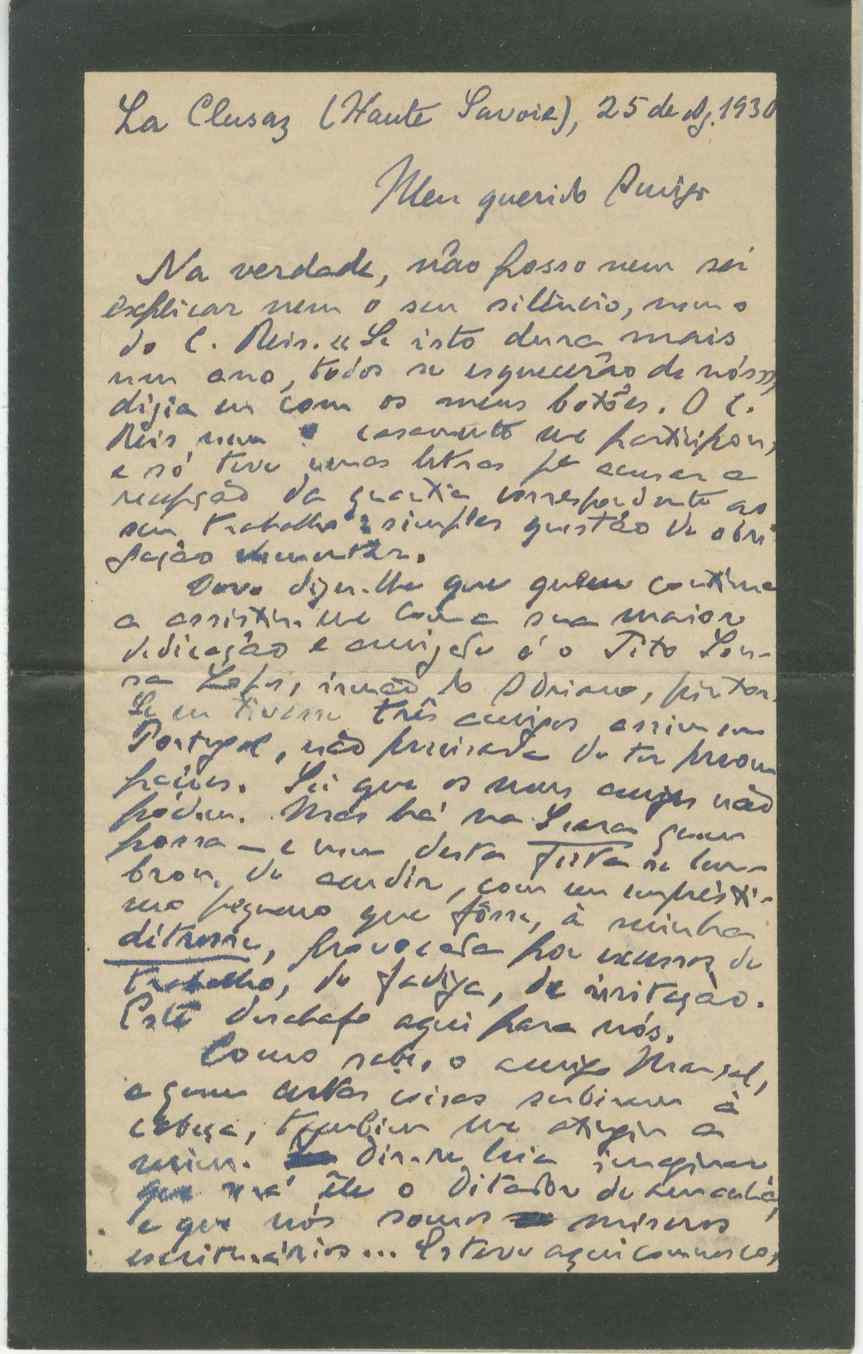 La Clusaz (Haute Savoie), 25 de Ag. 1930
Meu querido Amigo
Na verdade, não posso nem sei
explicar nem o seu silêncio, nem o
do C. Reis. «Se isto dura mais
um ano, todos se esquecerão de nós»,
dizia eu com os meus botões. O C.
Reis nem casamento me participou,
e só teve umas letras pª acusar a
recepção da quantia correspondente ao
seu trabalho: simples questão de obri-
gação elementar.
Devo dizer-lhe que quem continua
a assistir-me com a sua maior
dedicação e amizade é o Tito Sou-
sa Lopes, irmão do Adriano, pintor.
Se eu tivesse três amigos assim em
Portugal, não precisava de ter preocu-
pações. Sei que os meus amigos não
pódem. Mas há na Seara quem
possa — e nem desta feita se lem-
brou, de acudir, com um emprésti-
mo pequeno que fôsse, à minha
détresse, provocada por excessos de
trabalho, de fadiga, de irritação.
Êste desabafo aqui para nós.
Como sabe, o amigo Mangel,
a quem certas coisas subiram à
cabeça, também me atingiu a
mim. Dir-se-hia imaginar
que será êle o Ditador de àmanhã,
e que nós somos míseros
escriturários... Esteve aqui connosco,